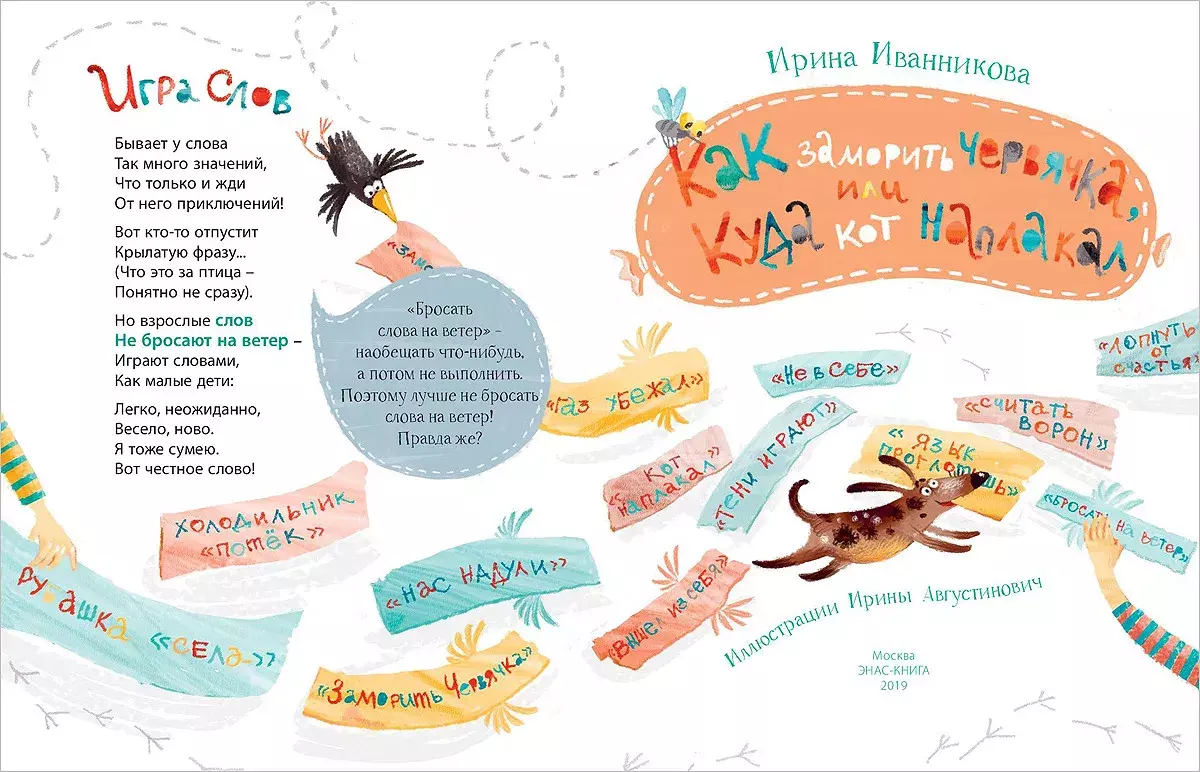 Игра Слов
Бывает у слова
Так много значений,
Что только и жди
От него приключений!
Вот кто-то отпустит
Крылатую фразу...
(Что это за птица –
Понятно не сразу).
Но взрослые слов
Не бросают на ветер –
Играют словами,
Как малые дети:
Легко, неожиданно,
Весело, ново.
Я тоже сумею.
Вот честное слово!
«Бросать
слова на ветер» –
наобещать что-нибудь,
а потом не выполнить.
Поэтому лучше не бросать
слова на ветер!
Правда же?
Холодильник
«потёк»
«села»
«Нас надули»
«Заморить червячка»
Ирина Иванникова
Как заморить червячка,
или
куда кот наплакал
«Газ убежал»
«Не в себе»
«Лопнуть
от
счастья»
«Считать
ворон»
«Кот
наплакал»
«Тени играют»
«Язык
проглотишь»
«Бросать на ветер»
«Вышел из себя»
Иллюстрации Ирины Августинович
Москва
ЭНАС-КНИГА
2019